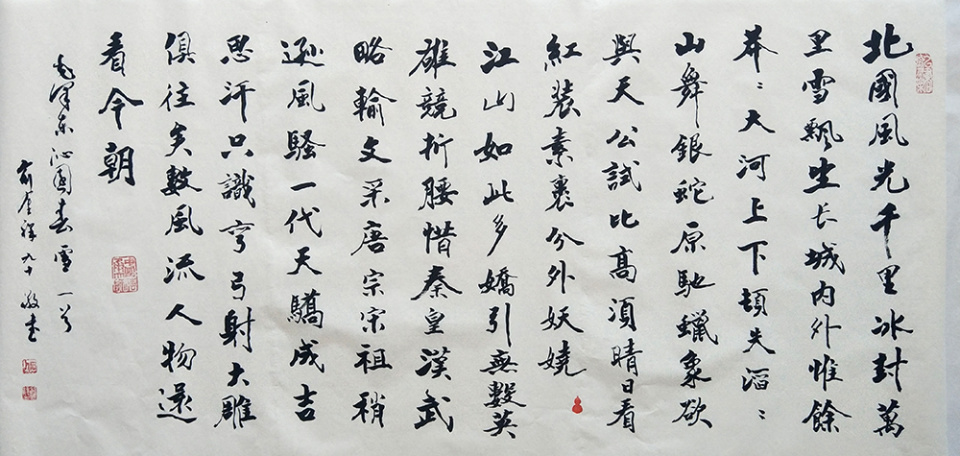 北國風光千里冰封萬
里雪飄望长城内外惟餘
莽〻大河上下頓失滔〻
山舞銀蛇原馳蠟象欲
與天公試比高須晴日看
紅裝素裹分外妖嬈
江山如此多嬌引無數英
雄競折腰惜秦皇漢武
略輸文采唐宗宋祖稍
遜風騷一代天驕成吉
思汗只識彎弓射大雕
俱往矣數風流人物還
看今朝
毛澤東沁園春雪一首
九十敬書